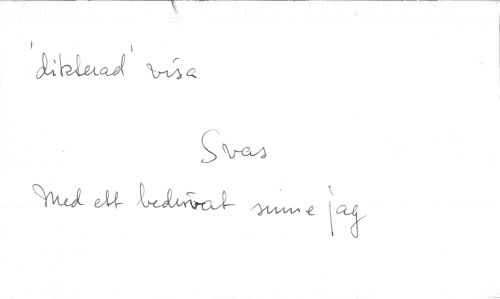 'dikterad' visa
Svas
Med ett bedrövat sinne jag